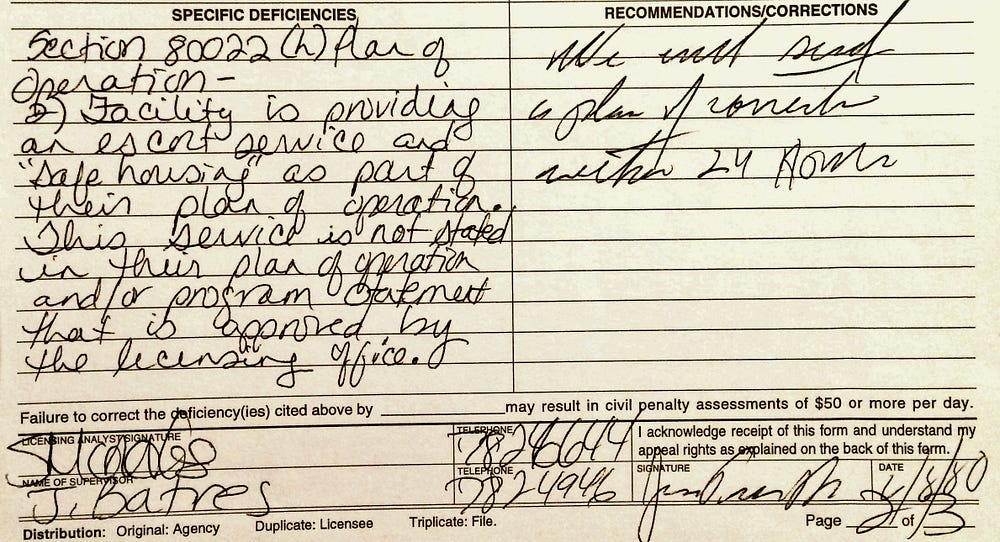 SPECIFIC DEFICIENCIES
Section 80022 (h) Plan of
Operation-
2) Facility is providing
an escort service and
"safe housing" as part of
their plan of operation.
This service is not stated
in their plan of operation
and/or program statement
that is approved by
the licensing office.
RECOMMENDATIONS/CORRECTIONS
We will send
a plan of
within 24 Hours
Failure to correct the deficiency(ies) cited above by ____________ may result in civil penalty assessments of $50 or more per day.
LICENSING ANALYST SIGNATURE
TELEPHONE
7826644
NAME OF SUPERVISOR
J. Batres
TELEPHONE
7824946
I acknowledge receipt of this form and understand my
appeal rights as explained on the back of this form.
SIGNATURE
DATE
Distribution: Original: Agency Duplicate: Licensee Triplicate: File.
Page 2 of 3